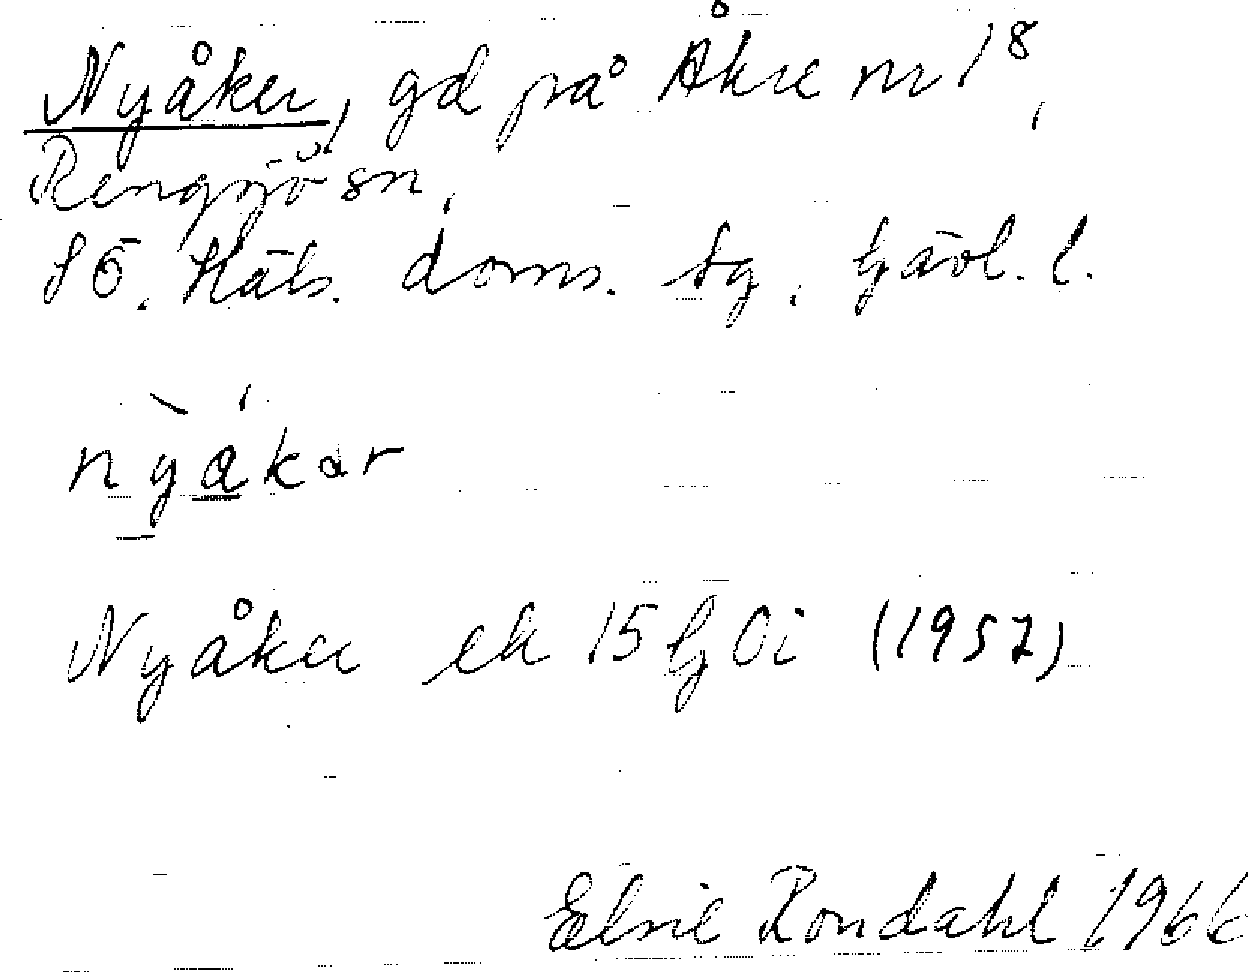 Nyåker, gd på Åkre nr 1⁸,
Rengsjö sn,
Sö. Häls. doms. tg, Gävl. l.
nỳákar
Nyåker ek 15 G Oi (1957)
Elsie Rondahl 1966